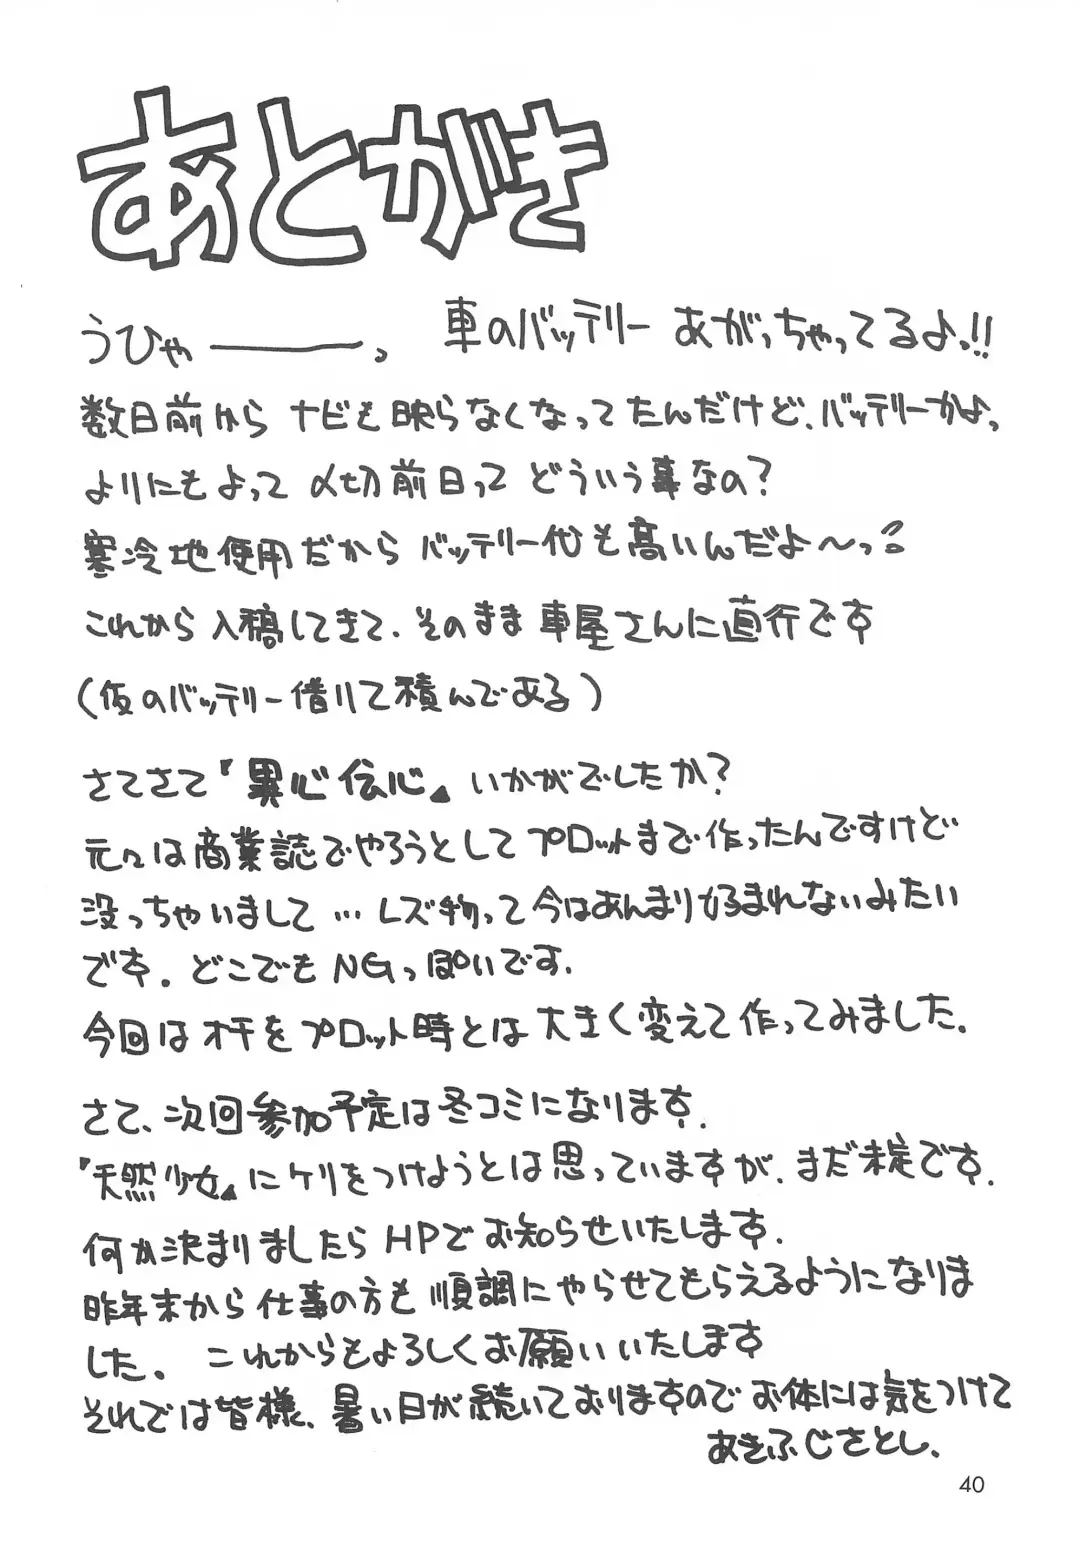 あとがき
うひゃ———っ 車のバッテリーあがっちゃってるよっ!!
数日前から ナビも映らなくなってたんだけど、バッテリーかよっ
よりにもよって〆切前日って どういう事なの?
寒冷地使用だから バッテリー代も高いんだよ〜っ
これから入稿してきて、そのまま車屋さんに直行です
(仮のバッテリー借りて積んである)
さてさて『異心伝心』いかがでしたか?
元々は商業誌でやろうとしてプロットまで作ったんですけど
没っちゃいまして…レズ物って今はあんまり好まれないみたい
です。どこでもNGっぽいです。
今回はオチをプロット時とは大きく変えて作ってみました。
さて、次回参加予定は冬コミになります。
『天然少女』にケリをつけようとは思っていますが、まだ未定です。
何か決まりましたらHPでお知らせいたします。
昨年末から仕事の方も順調にやらせてもらえるようになりま
した。これからもよろしくお願いいたします
それでは皆様、暑い日が続いておりますのでお体には気をつけて
あきふじさとし.
40